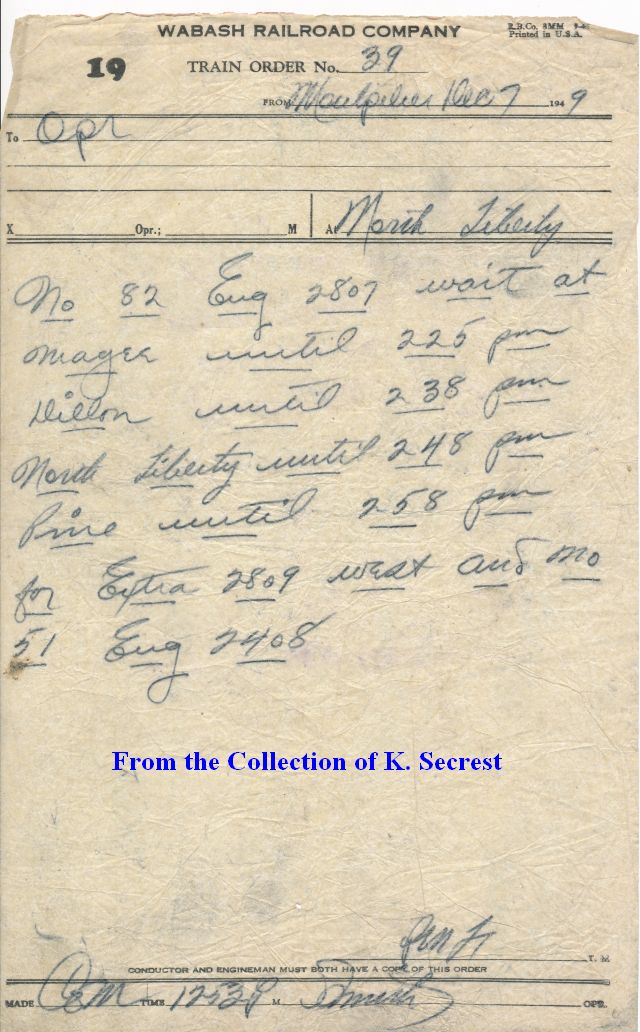 WABASH RAILROAD COMPANY
R.B.Co. 8MM
Printed in U.S.A.
19
TRAIN ORDER No. 39
FROM Montpelier Dec 7 1949
To Opr
X Opr.; M At North Liberty
No 82 Eng 2807 wait at
Magee until 225 pm
Dillon until 238 pm
North Liberty until 248 pm
Pine until 258 pm
for Extra 2809 west and No
51 Eng 2408
From the Collection of K. Secrest
T. M
CONDUCTOR AND ENGINEMAN MUST BOTH HAVE A COPY OF THIS ORDER
MADE Com TIME 1253 P M Smith OPR.